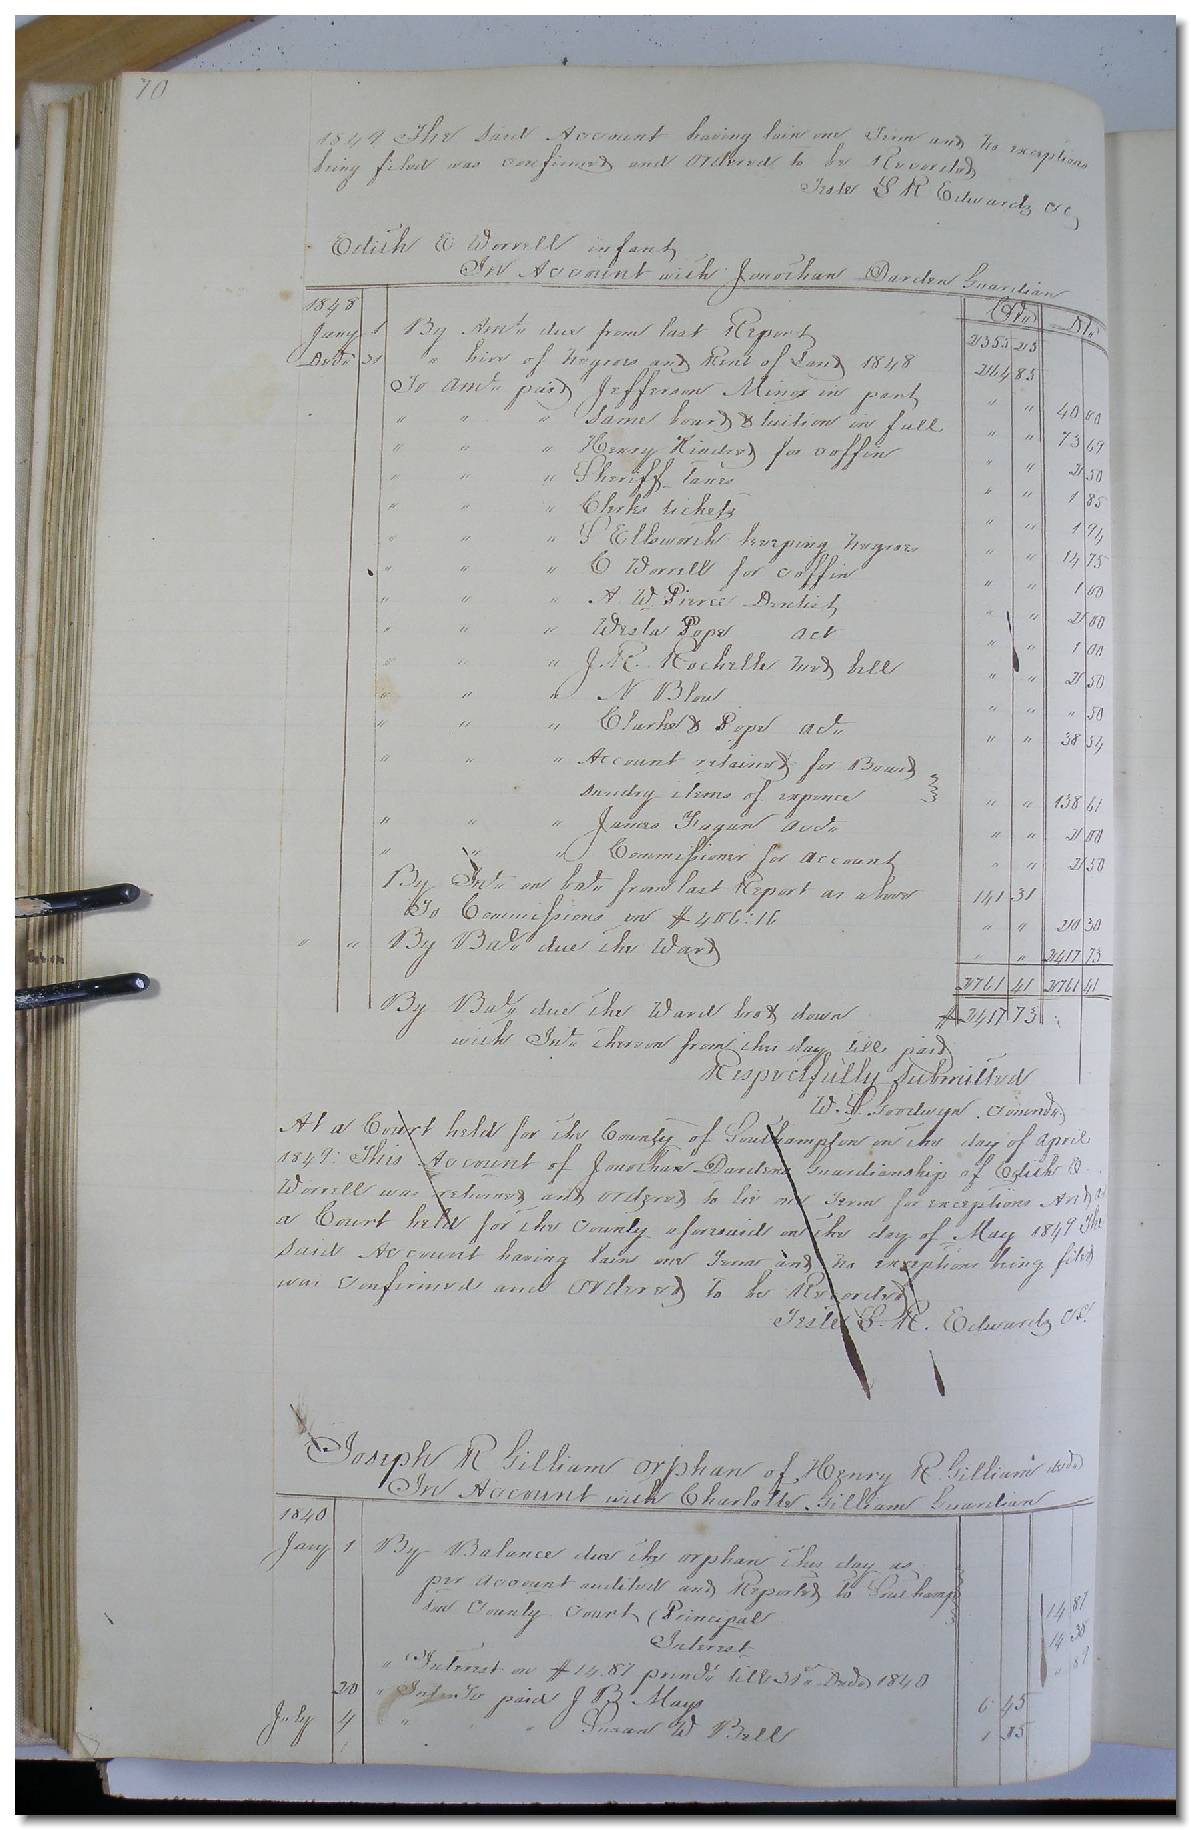 70
1849 The said Account having lain one Term and no exceptions
being filed was confirmed and Ordered to be Recorded
Teste L R Edwards CC
Edith E Worrell infant
In Account with Jonathan Darden Guardian
1848 Cr Dr
Jany 1 By Amt due from last Report 2355 25
Decr 31 " hire of negroes and Rent of Land 1848 264 85
To amt paid Jefferson Minor in part " " 40 00
" " " Same board & tuition in full " " 73 69
" " " Henry Kindred for coffin " " 2 50
" " " Sheriff taxes " " 1 85
" " " Clerks tickets " " 1 94
" " " S Ellsworth keeping negroes " " 14 75
" " " C Worrell for coffin " " 1 00
" " " A. W. Pierce Dentist " " 2 00
" " " Pope act " " 1 00
" " " J. R. Rochelle med bill " " 2 50
" " " N Blow " " " 50
" " " Clarke & Pope act " " 38 54
" " " Account retained for Board
sundry items of expence " " 138 61
" " " James Fagan acct " " 2 00
" " " Commissioner for account " " 2 50
By Int on balr from last Report as above 141 31
To Commissions on $406:16 " " 20 30
" " By Balr due the Ward " " 2417 73
2761 41 2761 41
By Balr due the Ward brot down $2417 73
with Int thereon from this day till paid
Respectfully Submitted
W. S. Goodwyn Commr
At a Court held for the County of Southampton on the day of April
1849: This Account of Jonathan Dardens Guardianship of Edith E
Worrell was returned and ordered to lie one Term for exceptions And at
a Court held for the County aforesaid on the day of May 1849 The
Said Account having lain one Term and no exceptions being filed
was confirmed and Ordered to be Recorded
Teste L. R. Edwards CC.
Joseph R Gilliam orphan of Henry R. Gilliam decd
In Account with Charlotte Gilliam Guardian
1840
Jany 1 By Balance due the orphan this day as
per account audited and Reported to Southamp
ton County Court (Principal 14 87
Interest 14 38
" Interest on $14.87 princl till 31st Decr 1840 " 87
20 " paid J B Mays 6 45
July 4 " " Susan W Bell 1 35